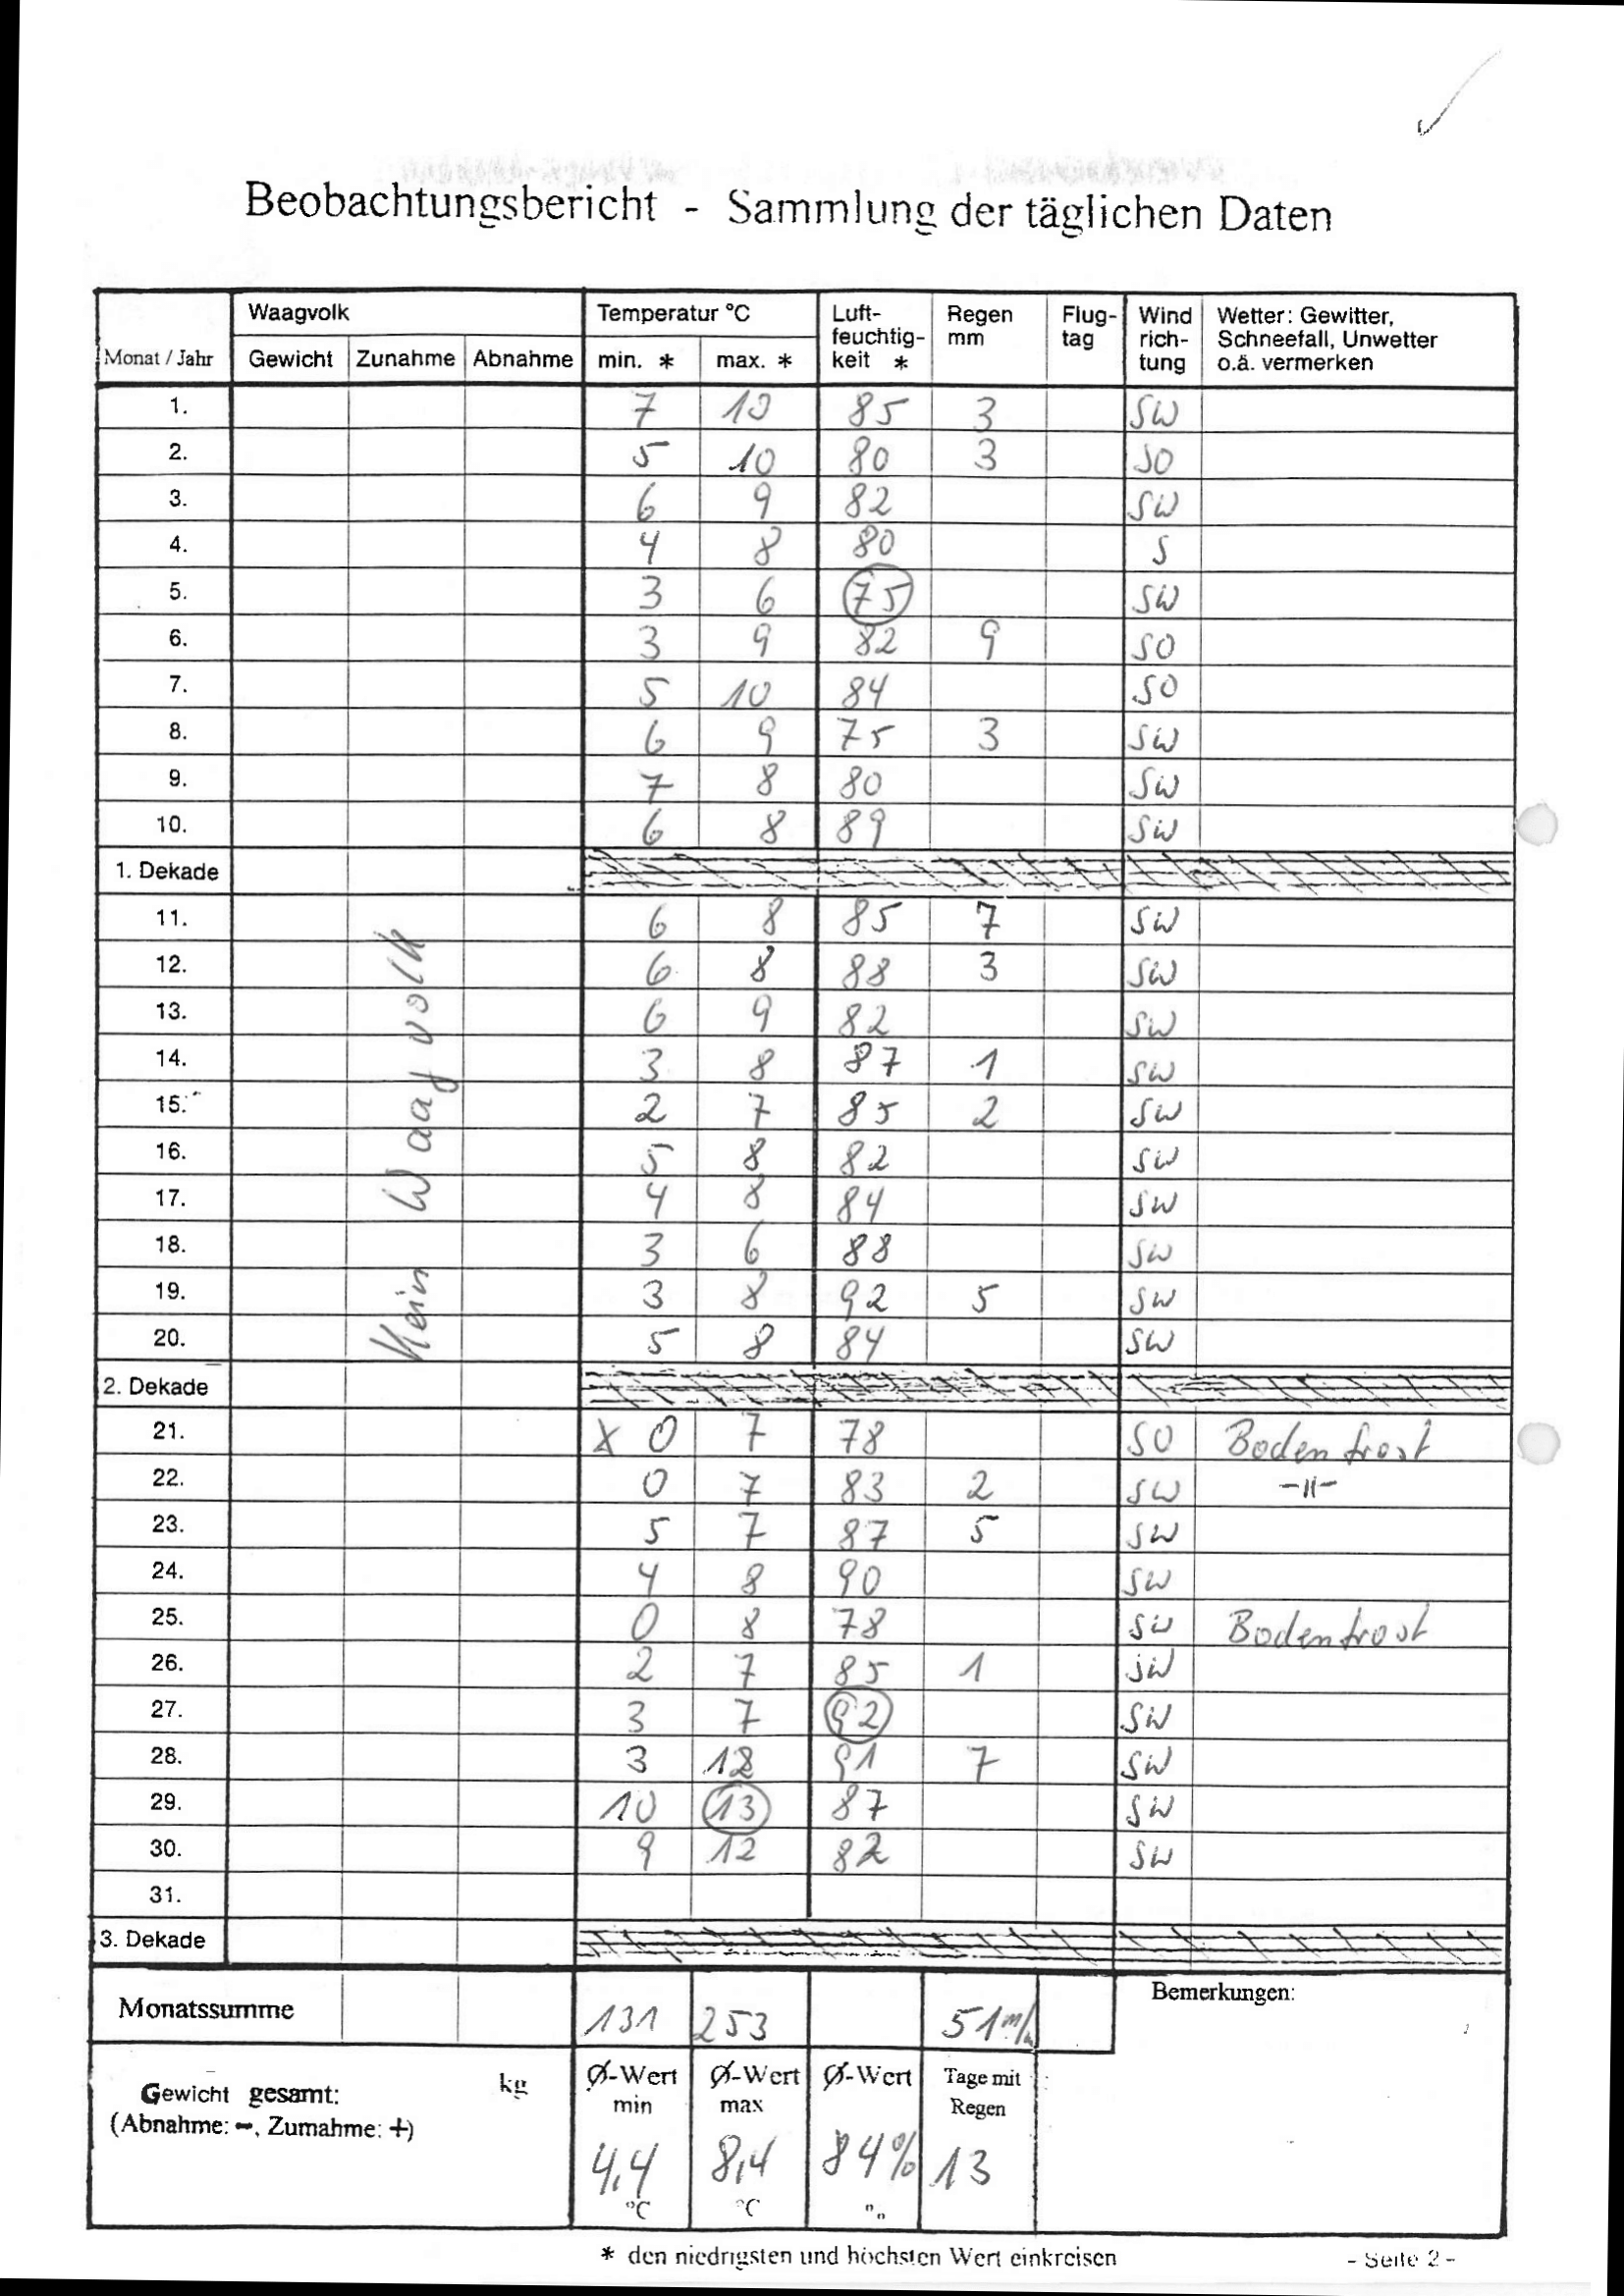 Beobachtungsbericht - Sammlung der täglichen Daten
Monat / Jahr Waagvolk Temperatur °C Luft-feuchtig-keit * Regen mm Flug-tag Wind rich-tung Wetter: Gewitter, Schneefall, Unwetter o.ä. vermerken
Gewicht Zunahme Abnahme min. * max. *
1. 7 10 85 3 SW
2. 5 10 80 3 SO
3. 6 9 82 SW
4. 4 8 80 S
5. 3 6 75 SW
6. 3 9 82 9 SO
7. 5 10 84 SO
8. 6 9 75 3 SW
9. 7 8 80 SW
10. 6 8 89 SW
1. Dekade
Kein Waagvolk
11. 6 8 85 7 SW
12. 6 8 88 3 SW
13. 6 9 82 SW
14. 3 8 87 1 SW
15. 2 7 85 2 SW
16. 5 8 82 SW
17. 4 8 84 SW
18. 3 6 88 SW
19. 3 8 92 5 SW
20. 5 8 84 SW
2. Dekade
21. X 0 7 78 SO Bodenfrost
22. 0 7 83 2 SW -11-
23. 5 7 87 5 SW
24. 4 8 90 SW
25. 0 8 78 SW Bodenfrost
26. 2 7 85 1 SW
27. 3 7 92 SW
28. 3 12 91 7 SW
29. 10 13 87 SW
30. 9 12 82 SW
31.
3. Dekade
Monatssumme 131 253 51 m/m
Bemerkungen:
Gewicht gesamt: kg
(Abnahme: -, Zumahme: +)
Ø-Wert min Ø-Wert max Ø-Wert Tage mit Regen
4,4 8,4 84% 13
°C °C
* den niedrigsten und höchsten Wert einkreisen
- Seite 2 -